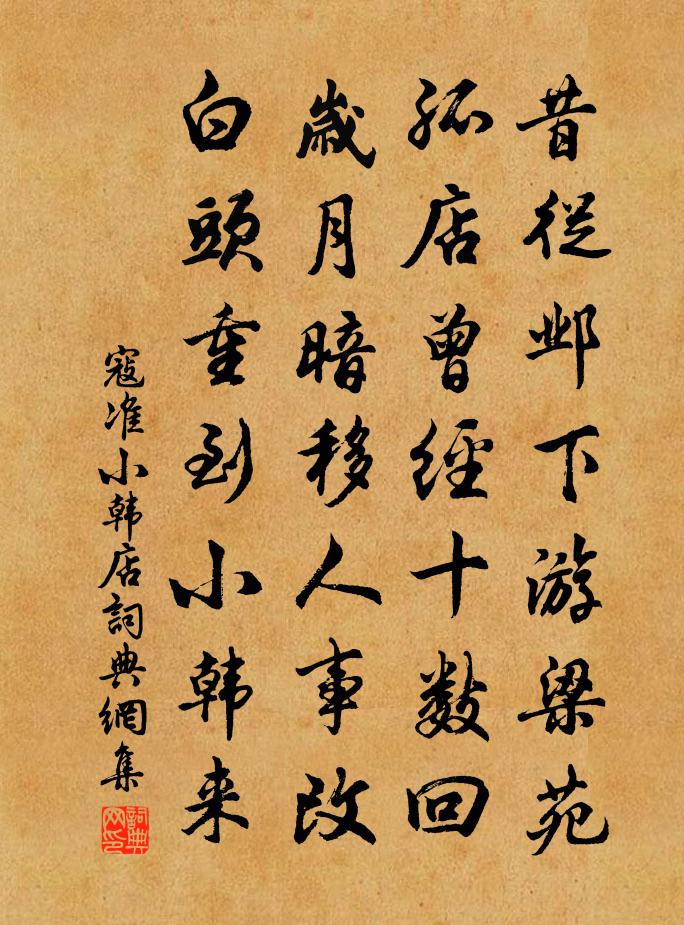 昔從邺下游梁苑
孤店曾經十數回
歲月暗移人事改
白頭重到小韩来
寇准小韩店詞典網集
詞典网印